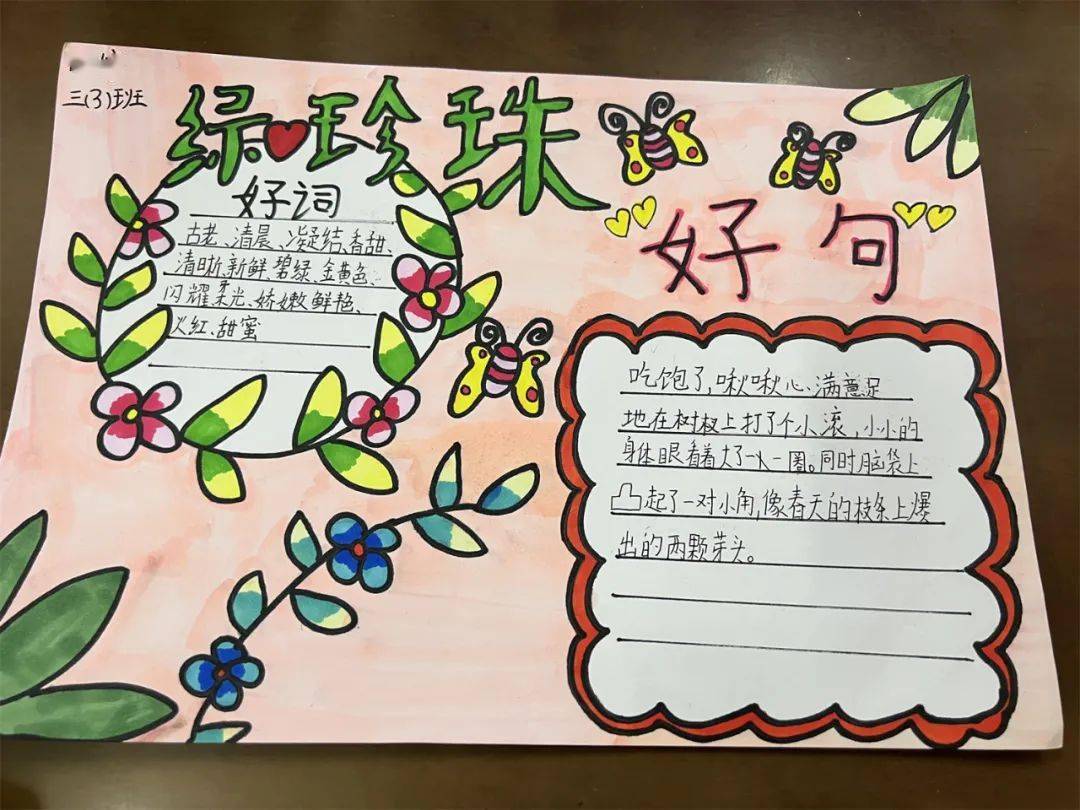 三(3)班
绿珍珠
好词
古老、清晨、凝结、香甜、
清晰、新鲜、碧绿、金黄色、
闪耀、柔光、娇嫩、鲜艳、
火红、甜蜜
"好句"
吃饱了,啾啾心满意足
地在树杈上打了个小滚,小小的
身体眼看着大了一圈。同时脑袋上
凸起了一对小角,像春天的枝条上爆
出的两颗芽头。